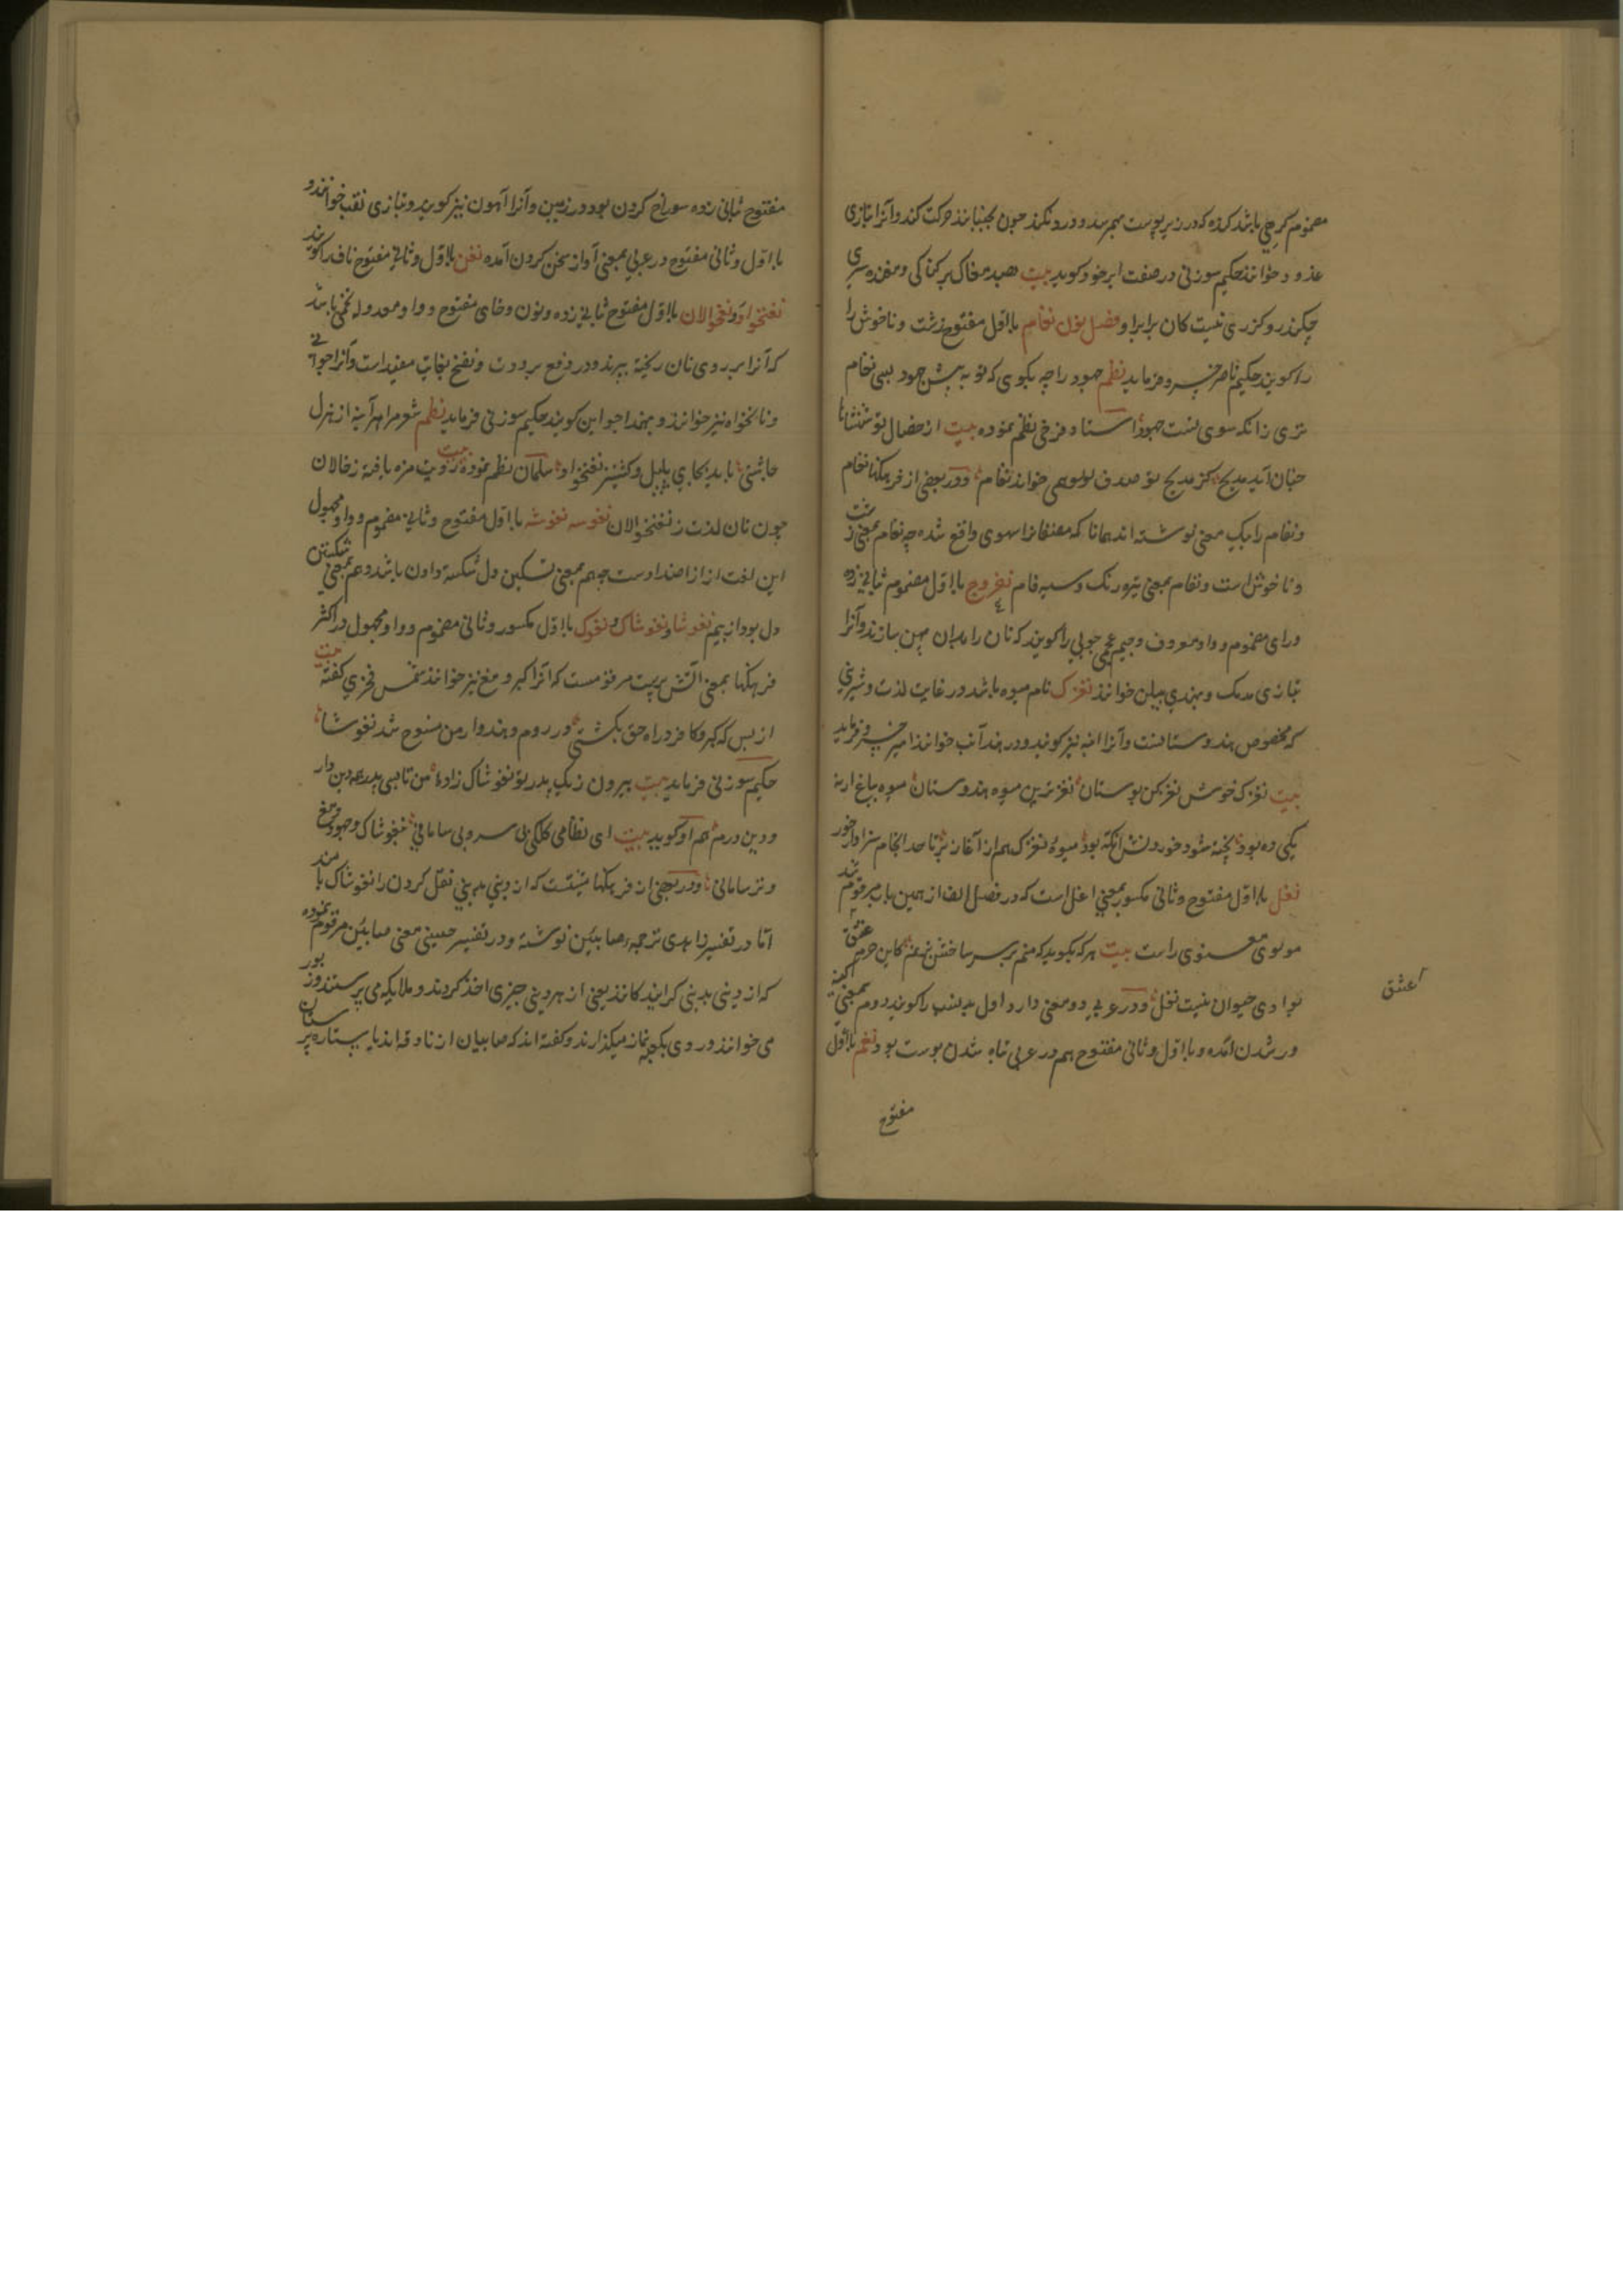 مضموم کرهی باشد کرده که در زیر پوست بهم رسد و درد نکند چون بجنبانند حرکت کند و آنرا بتازی
غدود خوانند حکیم سوزنی در صفت ایر خود کوید بیت صید مغاک بر کناکی و مغنده سری
چکند رو کزری نیست کان برابر او فصل نون نغام با اول مفتوح زشت و ناخوش را
را کویند حکیم ناصر خسرو فرماید نظم جهود را چه بکوی که تو به پیش جهود بسی نغام
تری زانکه سوی تست جهود استاد فرخی نظم نموده بیت از خصال تو
چنان آید مدیح کز مدیح تو صدف لولو همی خواند نغام و در بعضی از فرهنکها نغام
و نغام را بیک معنی نوشته اند همانا که مصنفانرا سهوی واقع شده چه نغام بمعنی زشت
و ناخوش است و نغام بمعنی تیره رنک و سیه فام نغروج با اول مضموم بثانی زده
و رای مضموم و واو معروف و جیم عجمی چوبی را کویند که نان را بدان پهن سازند و آنرا
بتازی مدمک و بهندی بیلن خوانند نغزک نام میوه باشد در غایت لذت و شیرینی
که مخصوص هندوستانست و آنرا انبه نیز کویند و در هند آنب خوانند امیر خسرو فرماید
بیت نغزک خوش نغز کن بوستان نغزترین میوه هندوستان میوه باغ ار به
یکی ده بود پخته شود خوردنش انکه بود میوه نغزک هم از آغاز بر تا حد انجام سزاوار خور
نغل با اول مفتوح و ثانی مکسور بمعنی اغل است که در فصل الف از همین باب مرقوم شد
مولوی معنوی راست بیت هر که بکوید که منم بر سر ساختش نهم کاین حرم عشق
بود ای حیوان نیست نغل و در عربی دو معنی دارد اول بدنسب را کویند دوم بمعنی کینه
ور شدن آمده و با اول و ثانی مفتوح هم در عربی تباه شدن پوست بود نغم با اول
مفتوح
عشق
مفتوح بثانی زده سوراخ کردن بود در زمین و آنرا آهون نیز کویند و بتازی نقب خوانند و
با اول و ثانی مفتوح در عربی بمعنی آواز سخن کردن آمده نغن با اول و ثانی مفتوح ناف را کویند
نغنخواد و نغنخوالان با اول مفتوح ثانی زده و نون و خای مفتوح و واو معدوله تخمی باشد
که آنرا بر روی نان ریخته بپزند و در دفع برودت و نفخ بغایت مفید است و آنرا جوانی
و نانخواه نیز خوانند و بهند اجواین کویند حکیم سوزنی فرماید نظم شعر مرا هر آینه از هزل
چاشنی باید بجای پلپل و کشنیز نغنخواد سلمان نظم نموده بیت ز دیت مزه یافته زخالان
چون نان لذت ز نغنخوالان نغوسه نغوشه با اول مفتوح و ثانی مضموم و واو مجهول
این لغت از اضداد ست چه هم بمعنی تسکین دل شکسته دادن باشد و هم بمعنی شکستن
دل بود از بیم نغوشا و نغوشاک و نغوک با اول مکسور و ثانی مضموم و واو مجهول در اکثر
فرهنکها بمعنی آتش پرست مرقومست که آنرا کبر و مغ نیز خوانند شمس فخری کفته بیت
از بس که کبر و کافر در راه حق بکشتی در روم و هند و ارمن منسوخ شد نغوشا
حکیم سوزنی فرماید بیت بیرون زیک پدر تو نغوشاک زاده من تا بسی پدر همه دین دار
و دین درم هم او کوید بیت ای نظامی کلکی بی سر و بی سامانی نغوشاک و جهود و مغ
و ترسامانی و در بعضی از فرهنکها مثبتست که از دینی بدینی نقل کردن را نغوشاک نامند
اما در تفسیر زاهدی ترجمه صابئین نوشته و در تفسیر حسینی معنی صابئین مرقوم نموده
که از دینی بدینی کرایند کانند یعنی از هر دینی چیزی اخذ کردند و ملایکه می پرستند و زبور
می خوانند و روی بکعبه نماز میکذارند و کفته اند که صابیان از نادقه اند یا ستاره پرستان